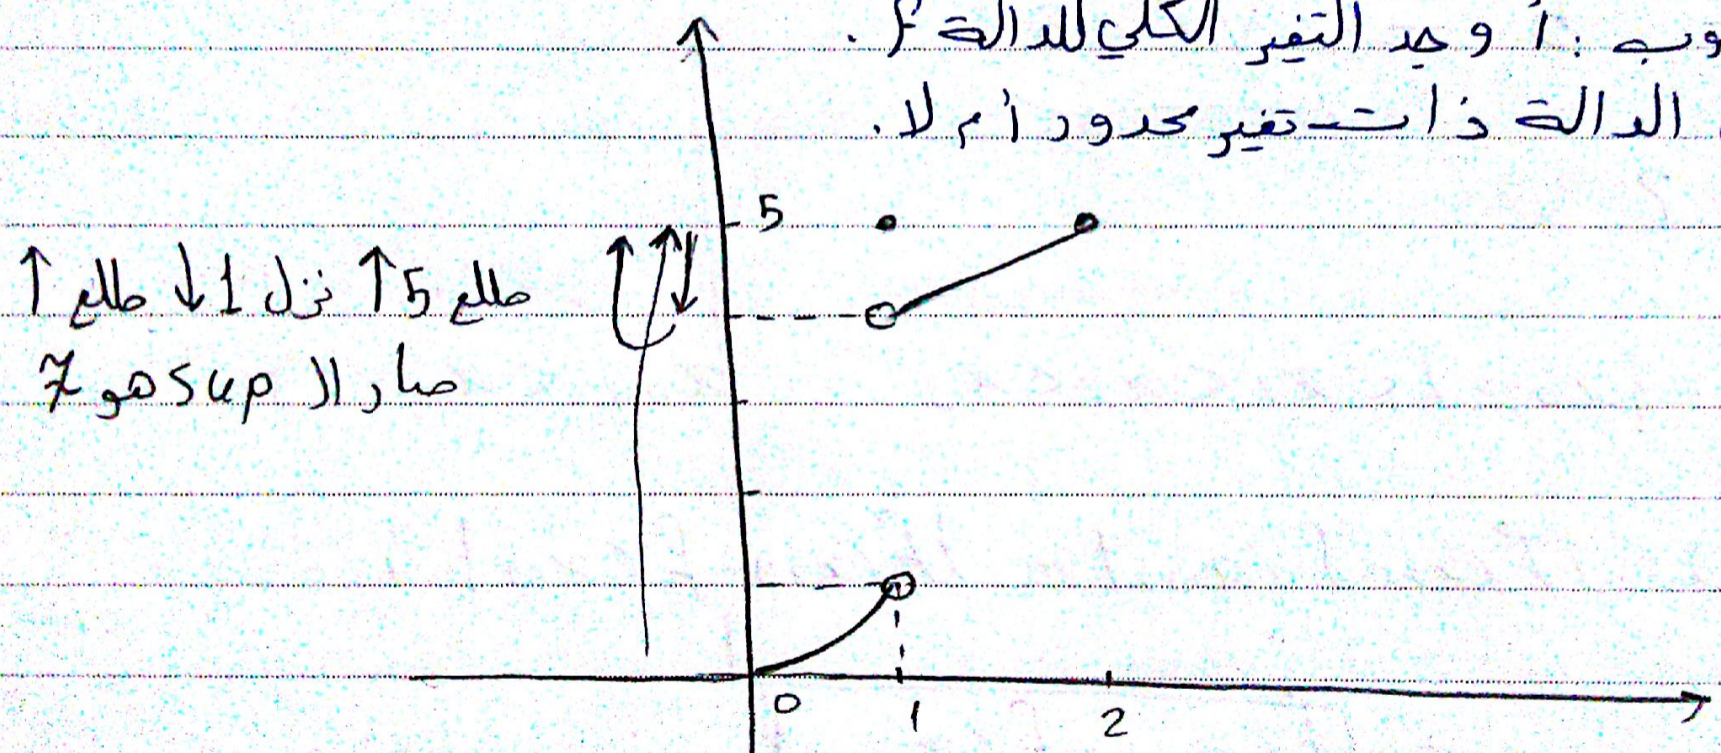 وب : أوجد التغير الكلي للدالة f .
الدالة ذات تغير محدود أم لا .
5
طلع 5 ↑ نزل 1 ↓ طلع ↑
صار الـ sup هو 7
0
1
2